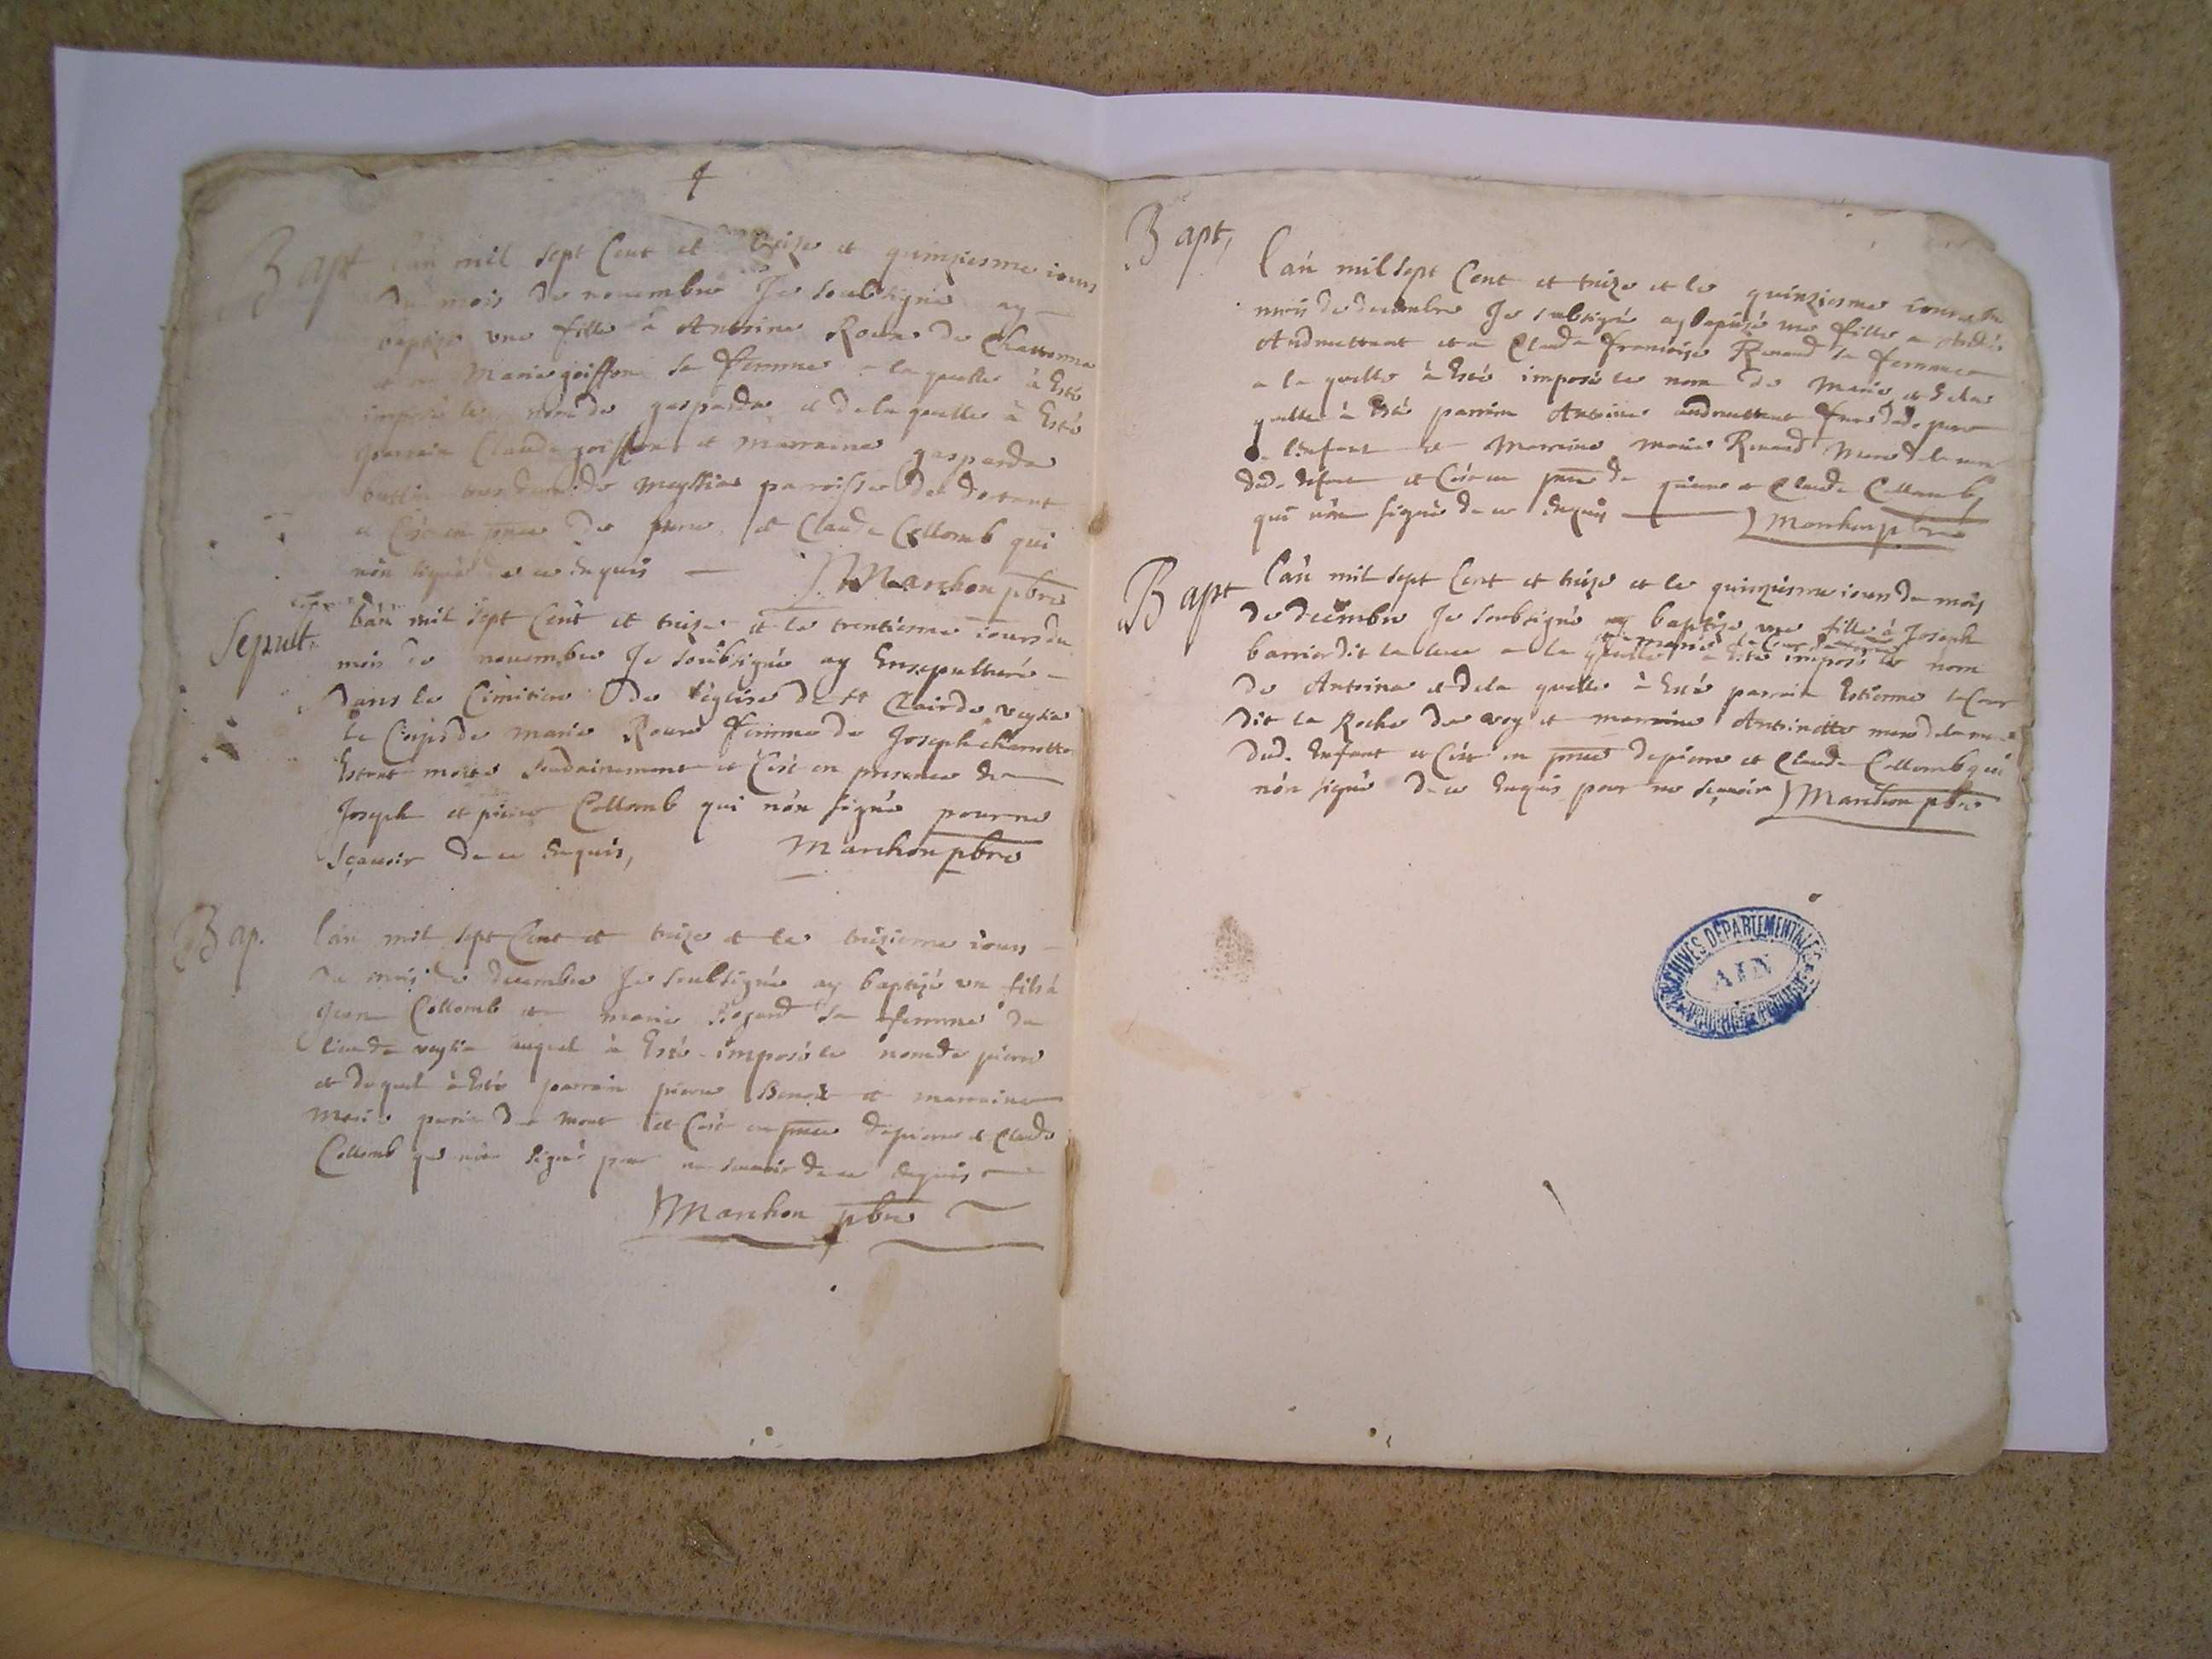 4
Bapt Lan mil sept Cent et treize et quinziesme iour
du mois de novembre Je soubsigné ay
baptize une fille à Antoine Roux de Chattonna
et Marie goiffon sa femme a laquelle à Esté
imposé le nom de gasparde et de laquelle à Esté
parrain Claude goiffon et marraine gasparde
de Meyssia parroisse de dotant
et C'est en pnce de piere et Claude Collomb qui
nôn signé de ce Enquis Marchon pbre
Sepult. Lan mil sept Cent et treize et le trentiesme iour du
mois de novembre Je soubsigné ay Ensepulturé
dans le Cimitiere de l'église de St Clair de veysia
le Corps de marie Roux femme de Joseph charnotte
Estant morte soudainement et C'est en presence de
Joseph et piere Collomb qui nôn signé pour ne
sçavoir de ce Enquis, Marchon pbre
Bap. Lan mil sept Cent et treize et le treizieme iour
du mois de decembre Je soubsigné ay baptizé un fils à
Jean Collomb et marie sa femme du
lieu de veysia auquel à Esté imposé le nom de piere
et duquel à Esté parrain piere Benoit et marraine
Marie de mont et C'est en pnce de piere et Claude
Collomb qui nôn signé pour ne scavoir de ce Enquis
Marchon pbre
Bapt, Lan mil sept Cent et treize et le quinziesme iour du
mois de decembre Je subsigné ay baptizé une fille a
Andruettant et a Claude francoise Renaud sa femme
a laquelle à Esté imposé le nom de Marie et de la
quelle à Esté parrain Antoine andruettant frere dud. pere
de l'Enfant et Marraine marie Renaud Mere de la mere
dud. Enfant et C'est en pnce de piere et Claude Collomb
qui nôn signé de ce Enquis Marchon pbre
Bapt Lan mil sept Cent et treize et le quinziesme iour du mois
de decembre Je soubsigné ay baptize une fille à Joseph
et a marie la Cour sa femme
barrier dit la a la quelle a Esté imposé le nom
de Antoina et de la quelle à Esté parrain Estienne la Cour
dit la Roche de et marraine Antoinette mere de la mere
dud. Enfant et C'est en pnce de piere et Claude Collomb qui
nôn signé de ce Enquis pour ne sçavoir Marchon pbre
ARCHIVES DÉPARTEMENTALES
AIN